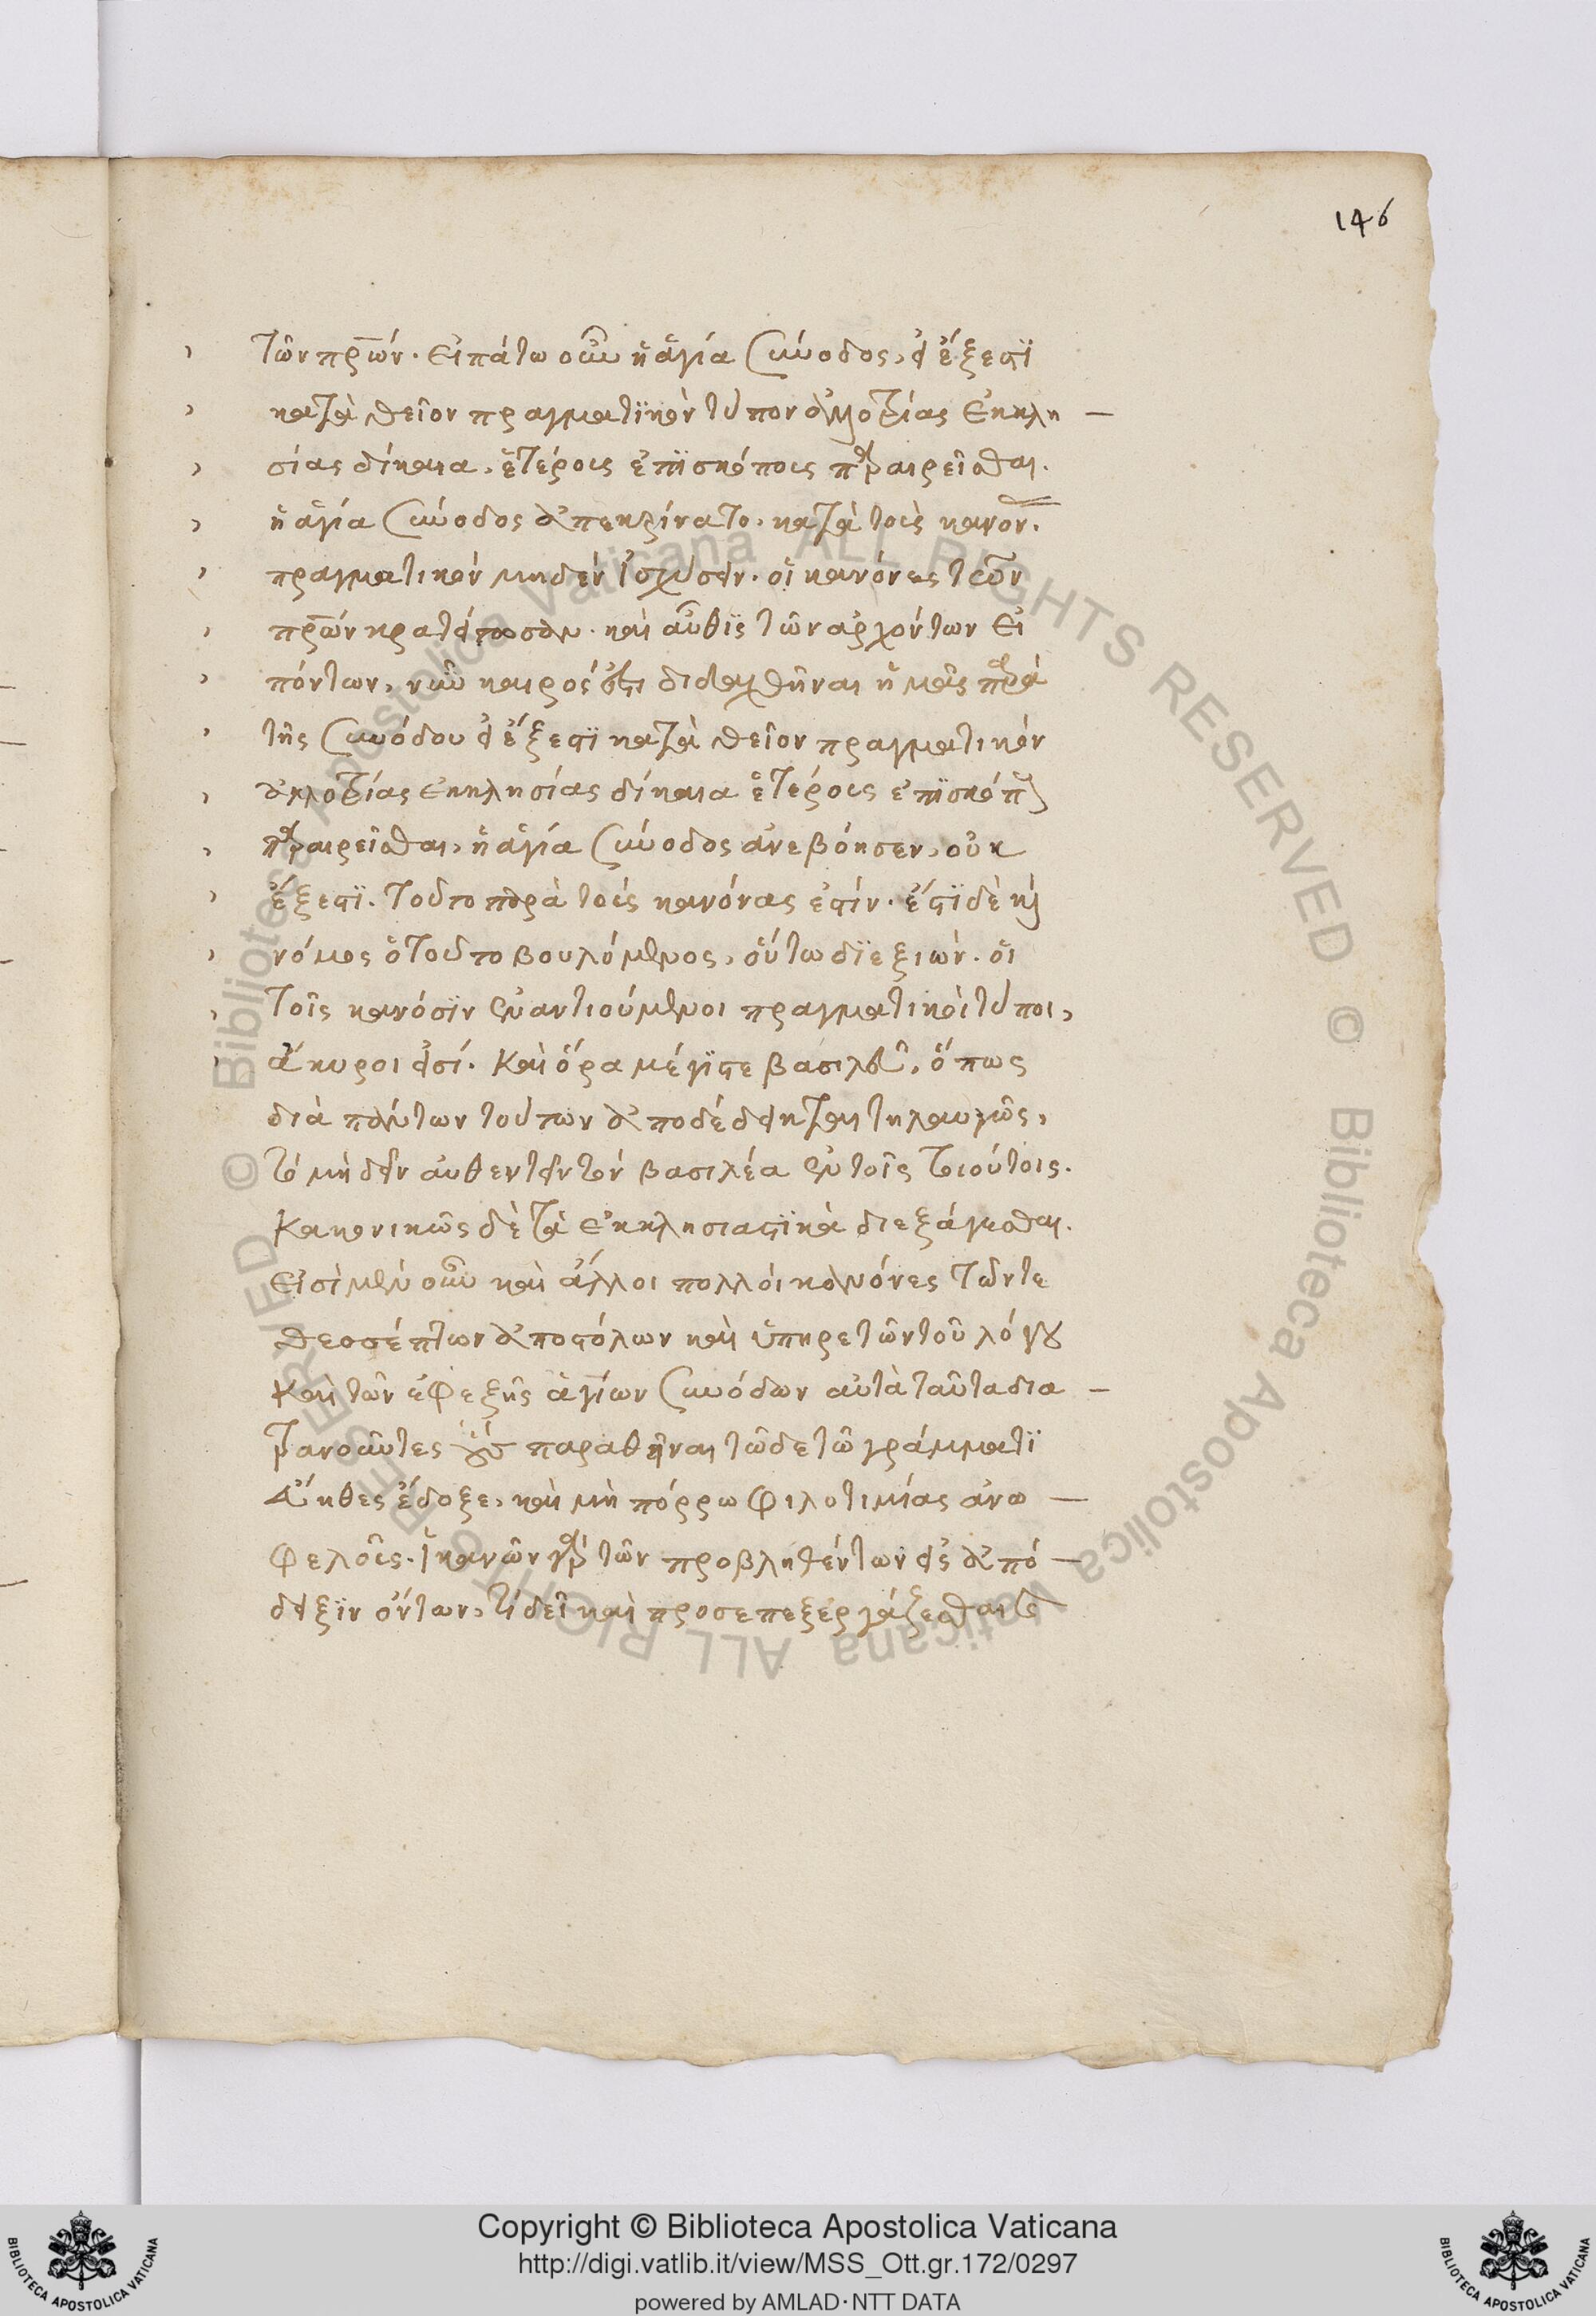 146
τῶν πρων. εἰπάτω οὖν ἡ ἁγία σύνοδος, εἰ ἔξεστϊ
κατὰ θεῖον πραγματϊκὸν τύπον ἀλλοτρίας ἐκκλη –
σίας δίκαια, ἑτέροις ἐπϊσκόποις παραιρεῖσθαι.
ἡ ἁγία σύνοδος ἀπεκρίνατο. κατὰ τοὺς κανον.
πραγματικὸν μηδὲν ἰσχύσει. οἱ κανόνες τῶν
πρων κρατείτωσαν. καὶ αὖθϊς τῶν ἀρχόντων εἰ
πόντων, νῦν καιρός ἐστι διδαχθῆναι ἡμᾶς παρὰ
τῆς συνόδου εἰ ἔξεστϊ κατὰ θεῖον πραγματικὸν
ἀλλοτρίας ἐκκλησίας δίκαια ἑτέροις ἐπϊσκόπ
παραιρεῖσθαι, ἡ ἁγία σύνοδος ἀνεβόησεν, οὐκ
ἔξεστϊ. τοῦτο παρὰ τοὺς κανόνας ἐστίν. ἔστϊ δὲ καὶ
νόμος ὁ τοῦτο βουλόμενος, οὕτω δϊεξιών. οἱ
τοῖς κανόσϊν ἐναντιούμενοι πραγματικοὶ τύποι,
ἄκυροι εἰσί. Καὶ ὅρα μέγϊστε βασιλεῦ, ὅπως
διὰ πάντων τούτων ἀποδέδεικται τηλαυγῶς,
τὸ μὴ δεῖν αὐθεντεῖν τὸν βασιλέα ἐν τοῖς τοιούτοις.
Κανονικῶς δὲ τὰ ἐκκλησιαστϊκὰ διεξάγεσθαι.
Εἰσὶ μὲν οὖν καὶ ἄλλοι πολλοὶ κανόνες τῶν τε
θεοσέπτων ἀποστόλων καὶ ὑπηρετῶν τοῦ λόγου
Καὶ τῶν ἐφεξῆς ἁγίων συνόδων αὐτὰ ταῦτα δια –
τρανοῦντες οὓς παραθεῖναι τῶδε τῶ γράμματϊ
ἄηθες ἔδοξε, καὶ μὴ πόρρω φιλοτιμίας ἀνω –
φελοῦς. ἱκανῶν γὰρ τῶν προβληθέντων εἰς ἀπό –
δειξϊν ὄντων, τί δεῖ καὶ προσεπεξεργάζεσθαι
Copyright © Biblioteca Apostolica Vaticana
http://digi.vatlib.it/view/MSS_Ott.gr.172/0297
powered by AMLAD·NTT DATA